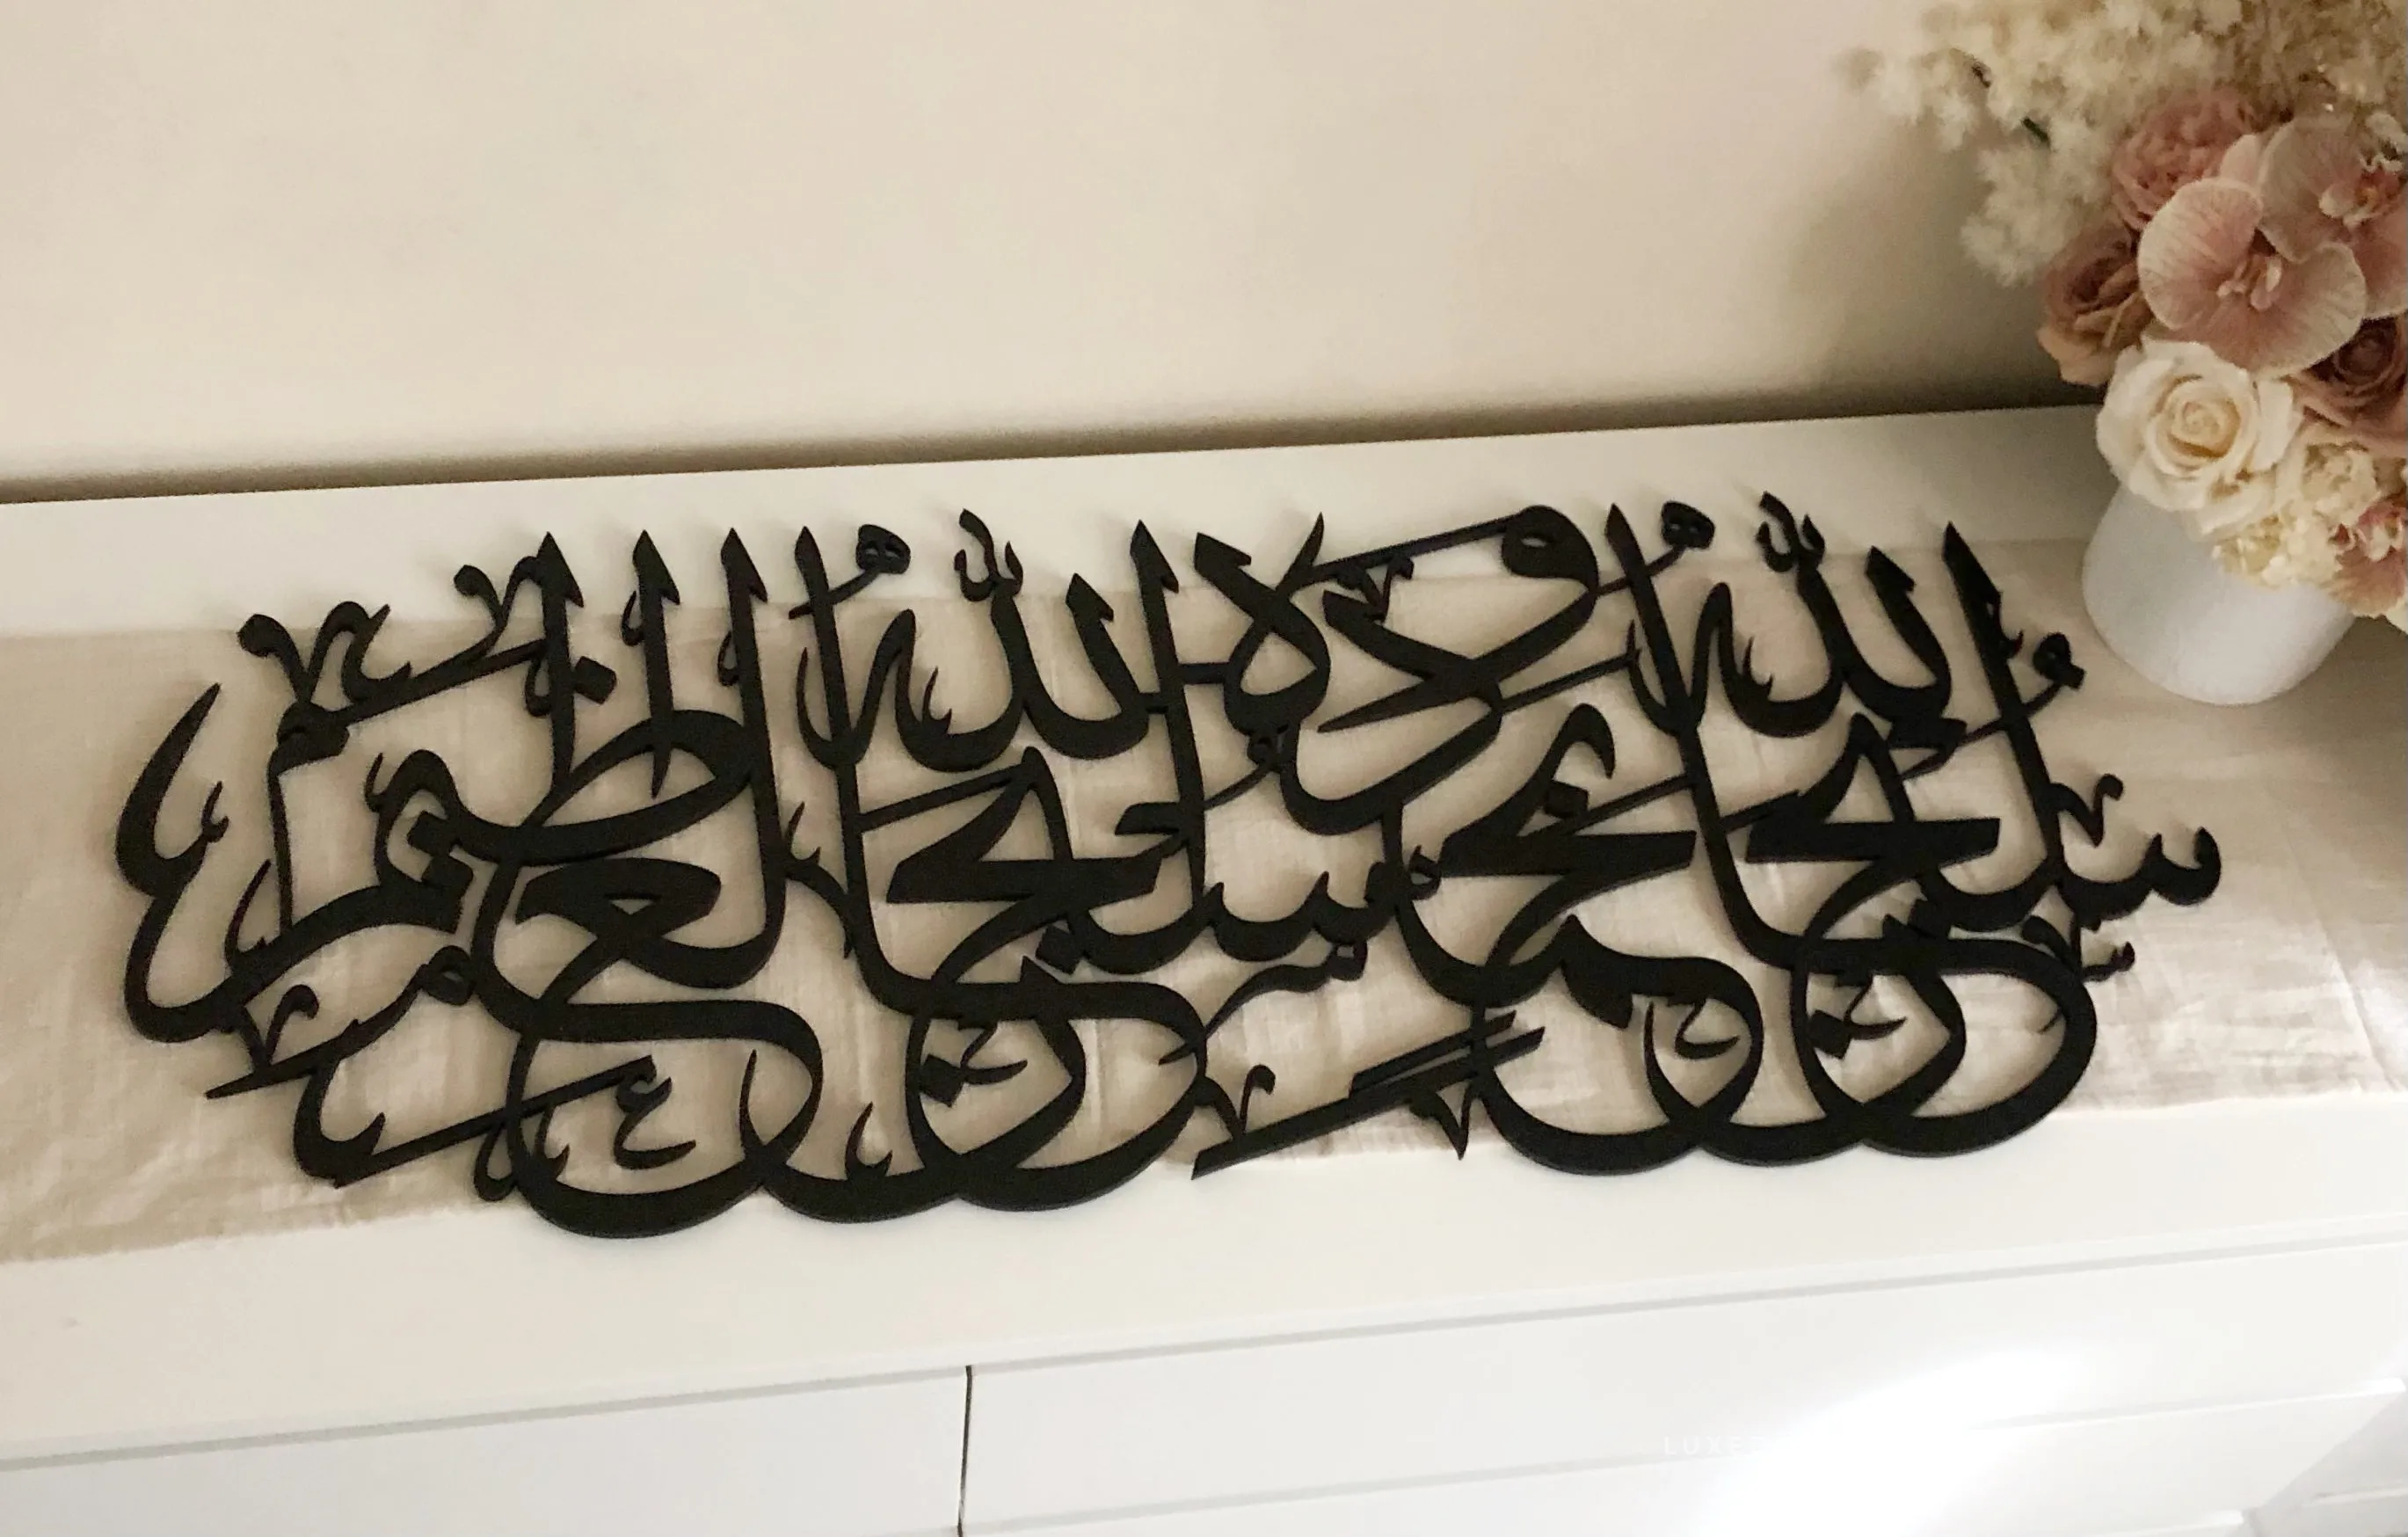 سُبْحَانَ اللهِ وَبِحَمْدِهِ سُبْحَانَ اللهِ الْعَظِيمِ
LUXE